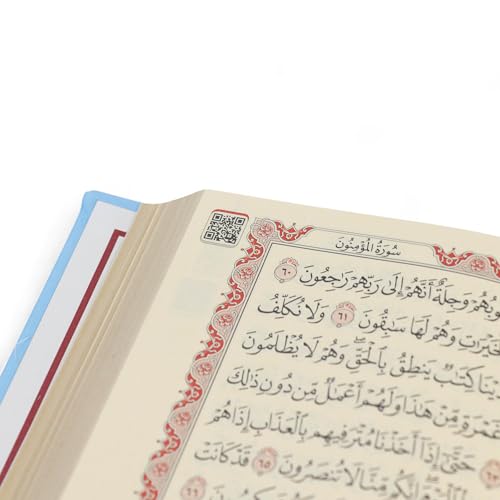 سُورَةُ الْمُؤْمِنُونَ
وَجِلَةٌ أَنَّهُمْ إِلَىٰ رَبِّهِمْ رَاجِعُونَ ٦٠
وَهُمْ لَهَا سَابِقُونَ ٦١ وَلَا نُكَلِّفُ
كِتَابٌ يَنطِقُ بِالْحَقِّ وَهُمْ لَا يُظْلَمُونَ
مِّنْ هَٰذَا وَلَهُمْ أَعْمَالٌ مِّن دُونِ ذَٰلِكَ
حَتَّىٰ إِذَا أَخَذْنَا مُتْرَفِيهِم بِالْعَذَابِ إِذَا هُمْ
إِنَّكُم مِّنَّا لَا تُنصَرُونَ ٦٥ قَدْ كَانَتْ
٦٦